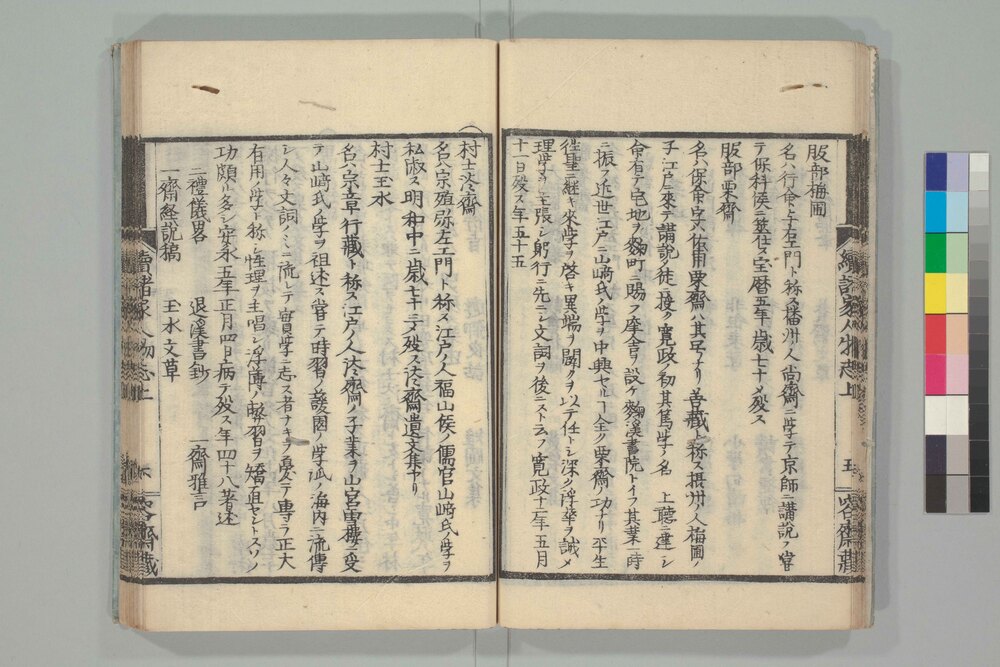 服部梅圃
名ハ行命与右エ門ト称ス播州ノ人尚齋ニ学テ京師ニ講説ス嘗
テ保科侯ニ筮仕ス宝暦五年歳七十〆殁ス
服部栗齋
名ハ保命字ハ佑甫栗齋ハ其号ナリ善藏ト称ス摂州ノ人梅圃ノ
子江戸ニ来テ講説ク徒ニ接ク寛政ノ初其篤学ノ名 上聽ニ達シ
命有テ宅地ヲ麹町ニ賜フ庠舎ヲ設ケ麹溪書院トイフ其業一時
ニ振フ近世江戸ニ山﨑氏ノ学ヲ中興セルハ全ク栗齋ノ功ナリ平生
徃聖ニ継キ来学ヲ啓キ異端ヲ闢クヲ以テ任トシ深ク浮華ヲ誡メ
理学ヲ主張シ躬行ニ先ニシ文詞ヲ後ニストラフ寛政十二年五月
十一日殁ス年五十五
續諸家人物志上
五
咯齋藏
村士淡齋
名ハ宗殖弥左エ門ト称ス江戸ノ人福山侯ノ儒官山﨑氏ノ学ヲ
私淑ス明和中ニ歳七十ニテ殁ス淡齋遺文集アリ
村士玉水
名ハ宗章行藏ト称ス江戸ノ人淡齋ノ子業ヲ山宮雪樓ニ受
テ山﨑氏ノ学ヲ祖述ス嘗テ時習ノ蘐園ノ学派ノ海内ニ流傳
シ人々文詞ノミニ流レテ實学ニ志ス者ナキヲ憂テ專ラ正大
有用ノ学ト称シ性理ヲ主唱シ浮薄ノ弊習ヲ矯正セントスソノ
功頗ル多シ安永五年正月四日病テ殁ス年四十八著述
二禮儀畧 退溪書鈔 一齋雅言
一齋経説稿 玉水文草
續諸家人物志上
咯齋藏